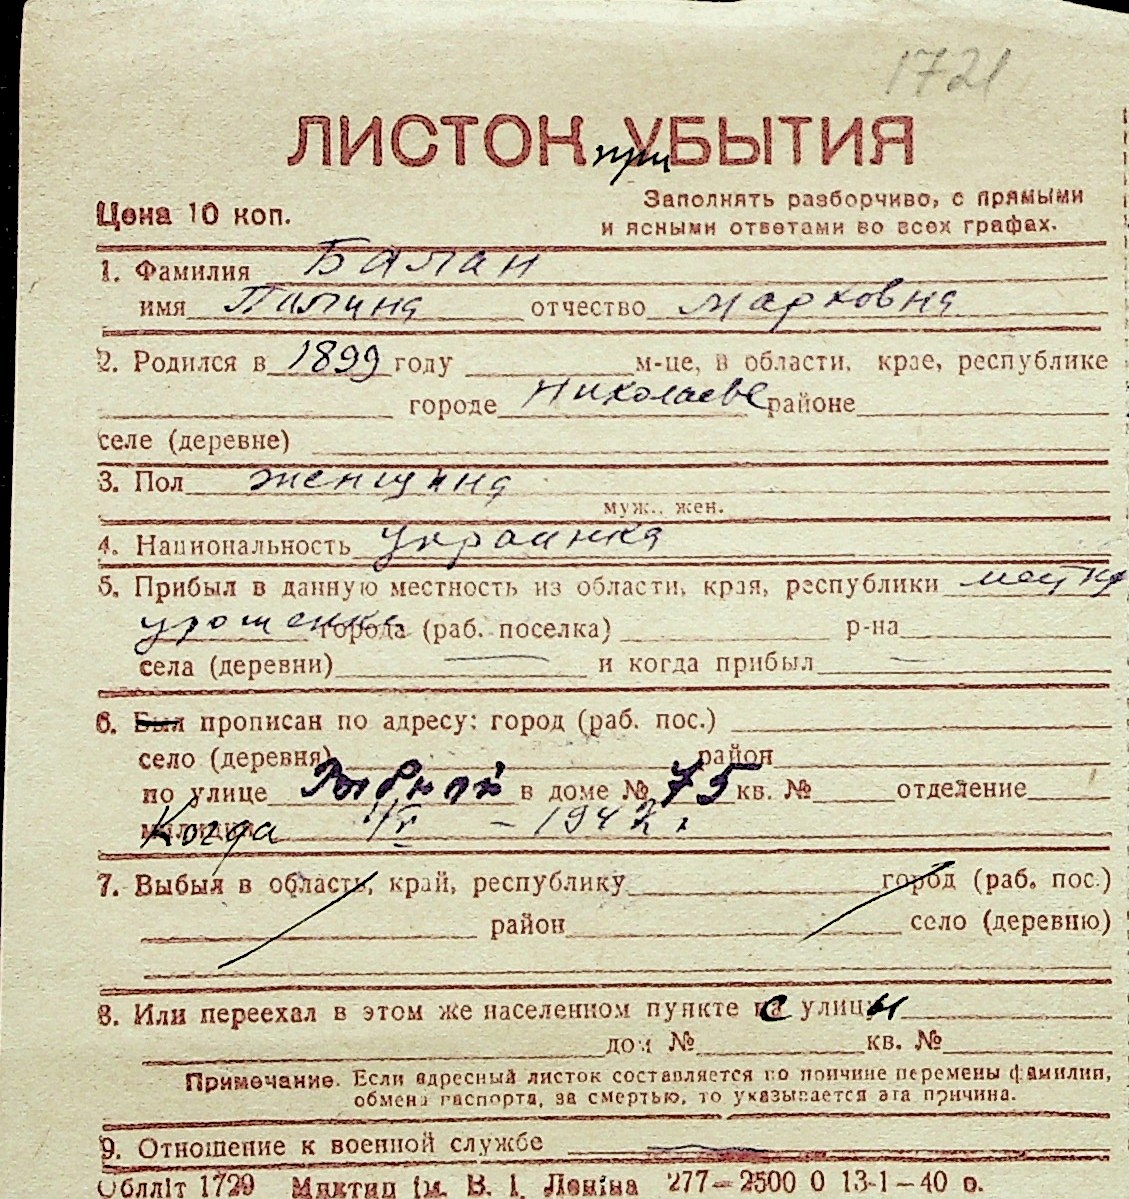 1721
ЛИСТОК при УБЫТИЯ
Цена 10 коп.
Заполнять разборчиво, с прямыми
и ясными ответами во всех графах.
1. Фамилия Балан
имя Полина отчество Марковна
2. Родился в 1899 году м-це, в области, крае, республике
городе Николаеве районе
селе (деревне)
3. Пол женщина
муж., жен.
4. Национальность украинка
5. Прибыл в данную местность из области, края, республики
города (раб. поселка) р-на
села (деревни) — и когда прибыл —
6. Был прописан по адресу: город (раб. пос.)
село (деревня) район
по улице Рыбной в доме № 75 кв. № отделение
Когда
7. Выбыл в область, край, республику город (раб. пос.)
район село (деревню)
8. Или переехал в этом же населенном пункте с улицы
дом № кв. №
Примечание. Если адресный листок составляется по причине перемены фамилии,
обмена паспорта, за смертью, то указывается эта причина.
9. Отношение к военной службе
Облліт 1729 Миктип ім. В. І. Леніна 277—2500 0 13-1—40 р.